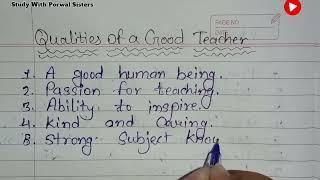 Study With Porwal Sisters
PAGE NO
DATE
Qualities of a Good Teacher
1. A good human being.
2. Passion for teaching.
3. Ability to inspire.
4. Kind and Caring.
5. Strong Subject Know